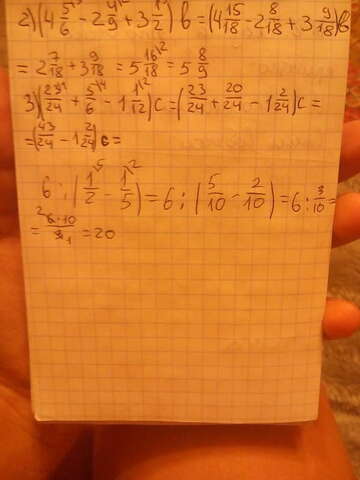 2) (4 5/6 - 2 4/9 + 3 1/2) b = (4 15/18 - 2 8/18 + 3 9/18) b
= 2 7/18 + 3 9/18 = 5 16/18 = 5 8/9
3) (23/24 + 5/6 - 1 1/12) c = (23/24 + 20/24 - 1 2/24) c =
= (43/24 - 1 2/24) c =
6 : (1/2 - 1/5) = 6 : (5/10 - 2/10) = 6 : 3/10 =
= 6·10/3 = 20